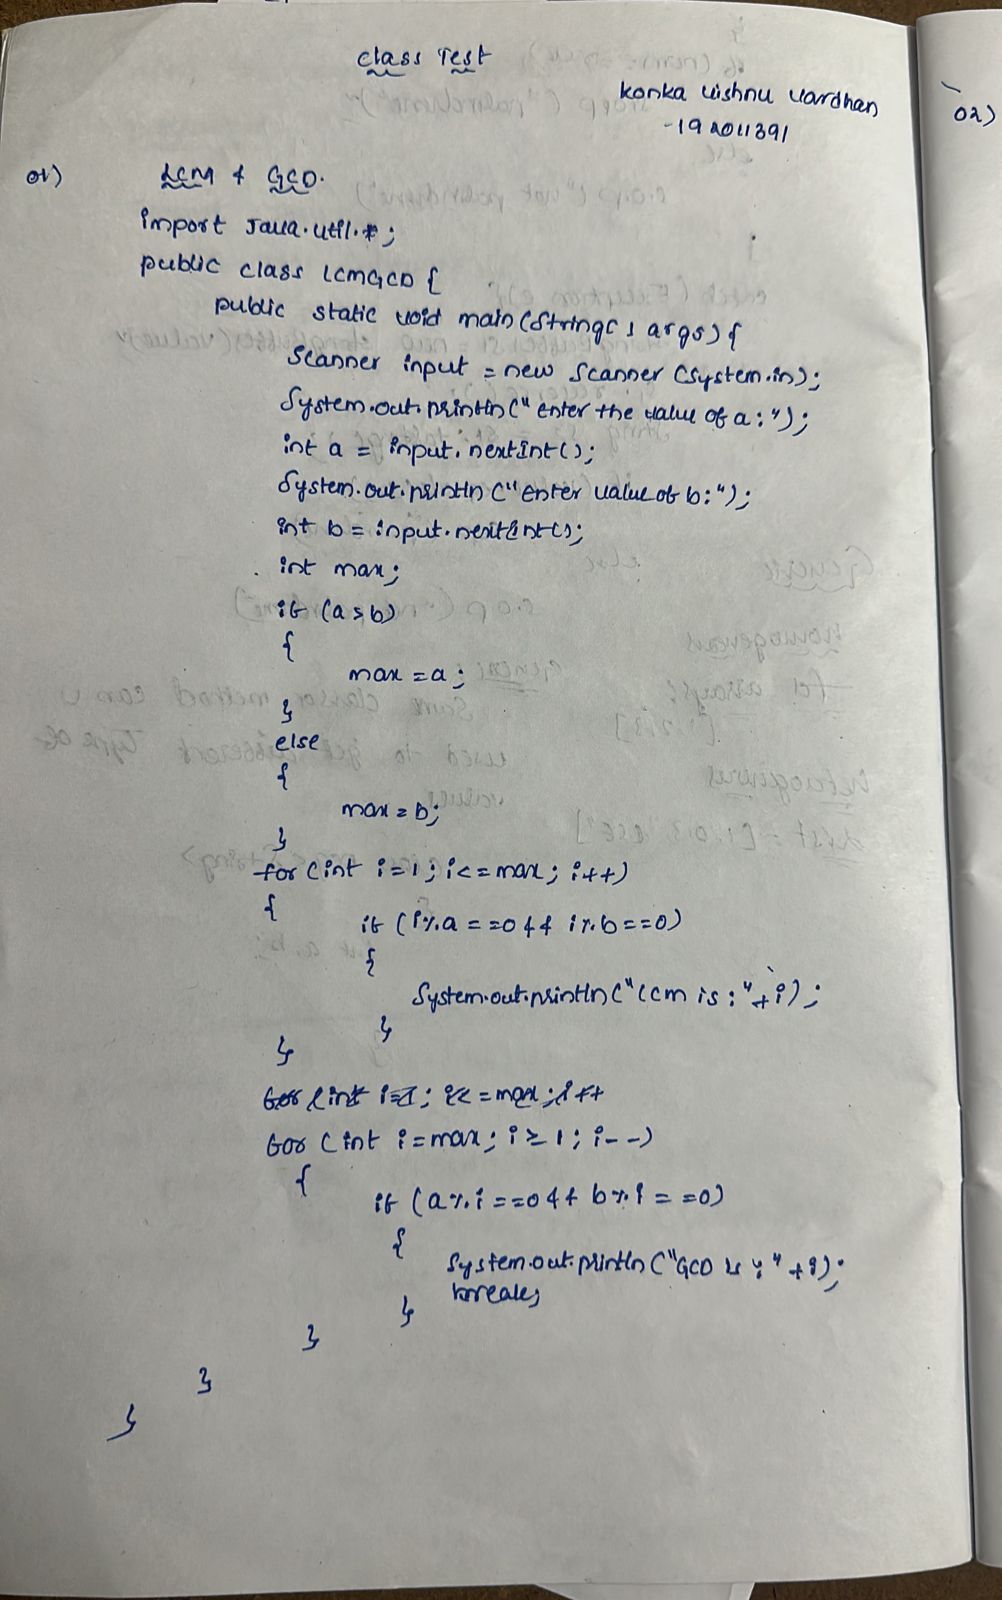 class Test
Konka vishnu vardhan
-192011391
02)
01) LCM & GCD.
import Java.util.*;
public class LCMGCD {
public static void main(String[] args) {
Scanner input = new Scanner (System.in);
System.out.println("enter the value of a:");
int a = input.nextInt();
System.out.println("enter value of b:");
int b = input.nextInt();
int max;
if (a>b)
{
max = a;
}
else
{
max = b;
}
for (int i=1; i<=max; i++)
{
if (i%a==0 && i%b==0)
{
System.out.println("LCM is:"+i);
}
}
for (int i=1; i<=max; i++
for (int i=max; i≥1; i--)
{
if (a%i==0 && b%i==0)
{
System.out.println("GCD is:"+i);
break;
}
}
}
}